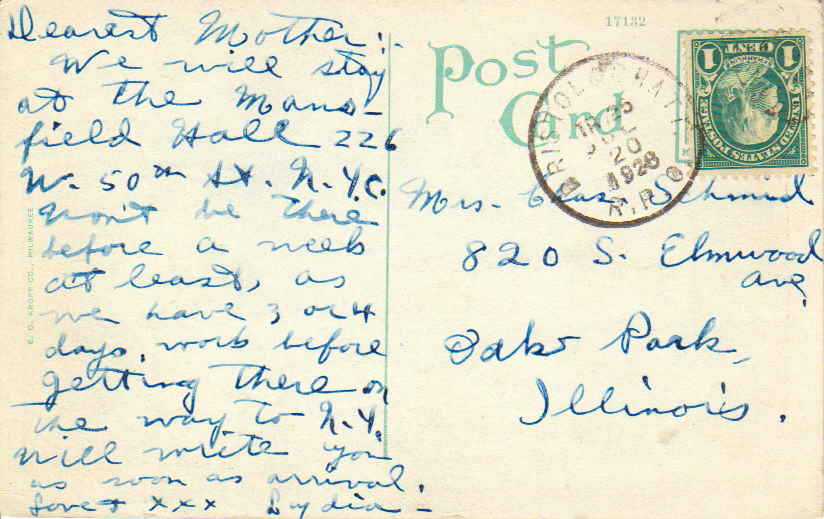 Dearest Mother:-
We will stay
at the Mans-
field Hall 226
W. 50th St. N.Y.C.
Won't be there
before a week
at least, as
we have 3 or 4
days, work before
getting there on
the way to N.Y.
Will write you
as soon as arrival.
Love + xxx Lydia-
E. C. KROPP CO., MILWAUKEE
17132
Post
Card
BRISTOL & CHAT.
TR 25
JUL
20
1926
R.P.O.
UNITED STATES POSTAGE
1 CENT 1
Mrs. Chas Schmid
820 S. Elmwood
Ave.
Oak Park,
Illinois.